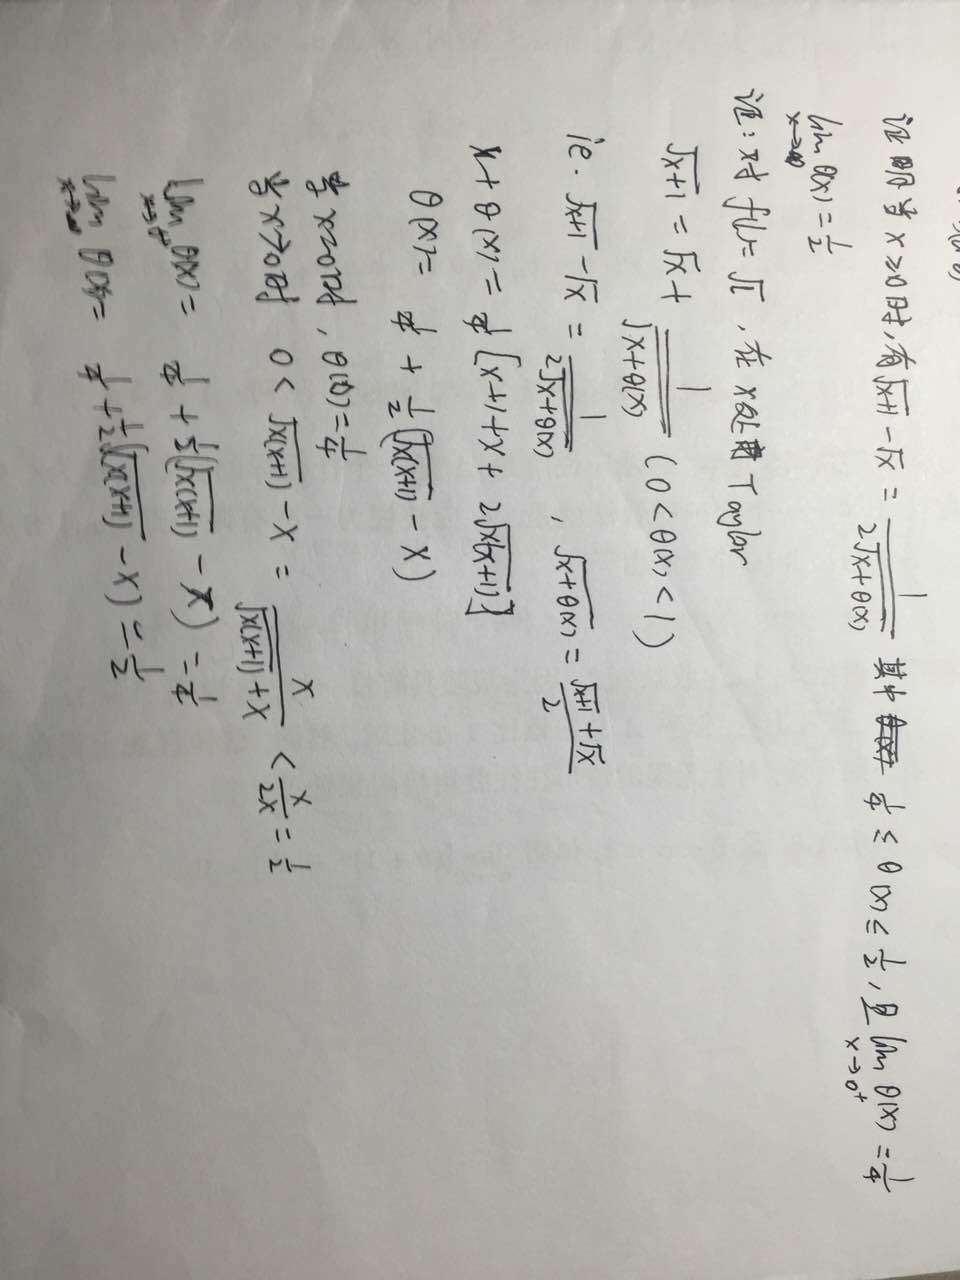 证明当 x≥0时,有√(x+1) - √x = 1/(2√(x+θ(x))) 其中 1/4 ≤ θ(x) ≤ 1/2, 且 lim_{x→0⁺} θ(x) = 1/4
lim_{x→∞} θ(x) = 1/2
证: 对 f(t) = √t , 在 x处用Taylor
√(x+1) = √x + 1/√(x+θ(x)) (0<θ(x)<1)
ie. √(x+1) - √x = 1/(2√(x+θ(x))) √(x+θ(x)) = (√(x+1) + √x)/2
x + θ(x) = 1/4 [x+1+x+ 2√(x(x+1))]
θ(x) = 1/4 + 1/2(√(x(x+1)) - x)
当 x=0时 , θ(0) = 1/4
当 x>0时 0 < √(x(x+1)) - x = x/(√(x(x+1)) + x) < x/(2x) = 1/2
lim_{x→0⁺} θ(x) = 1/4 + 1/2(√(x(x+1)) - x) = 1/4
lim_{x→∞} θ(x) = 1/4 + 1/2(√(x(x+1)) - x) = 1/2